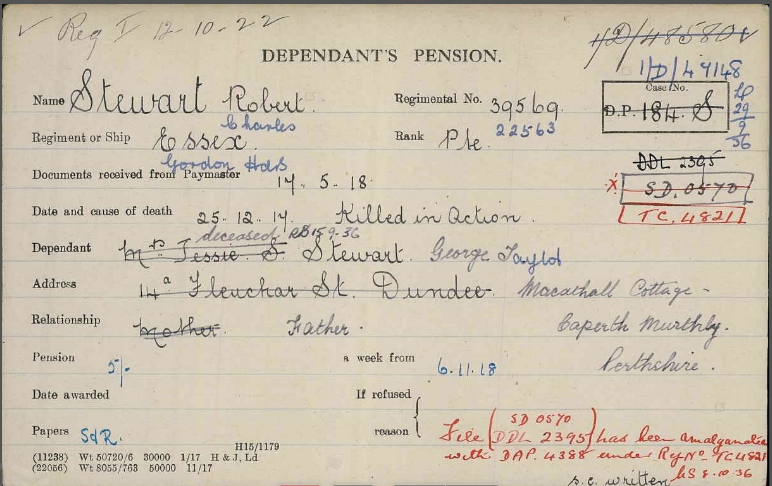 ✓ Reg I 12-10-22
1/D/48580
1/D/49148
DEPENDANT'S PENSION.
Case/No.
D.P. 184. S
29/9/36
Name Stewart Robert. Charles
Regimental No. 39569. 22563
Regiment or Ship Essex. Gordon Hdrs
Rank Pte.
DDL 2395
Documents received from Paymaster 17-5-18.
X SD. 0570
TC. 4821
Date and cause of death 25-12-17. Killed in Action.
deceased RB 15.9.36
Dependant Mrs Jessie S. Stewart. George Taylor
Address 14a Fleuchar St. Dundee. Macathall Cottage -
Caperth Murthly.
Perthshire.
Relationship Mother. Father.
Pension 5/- a week from 6.11.18
Date awarded
If refused
reason
Papers SdR.
File (SD 0570 DDL 2395) has been amalgamated
with DAP. 4388 under Ry No TC4821
8.10.36
H15/1179
(11238) Wt 50720/6 30000 1/17 H & J, Ld
(22056) Wt 8055/763 50000 11/17
s.c. written